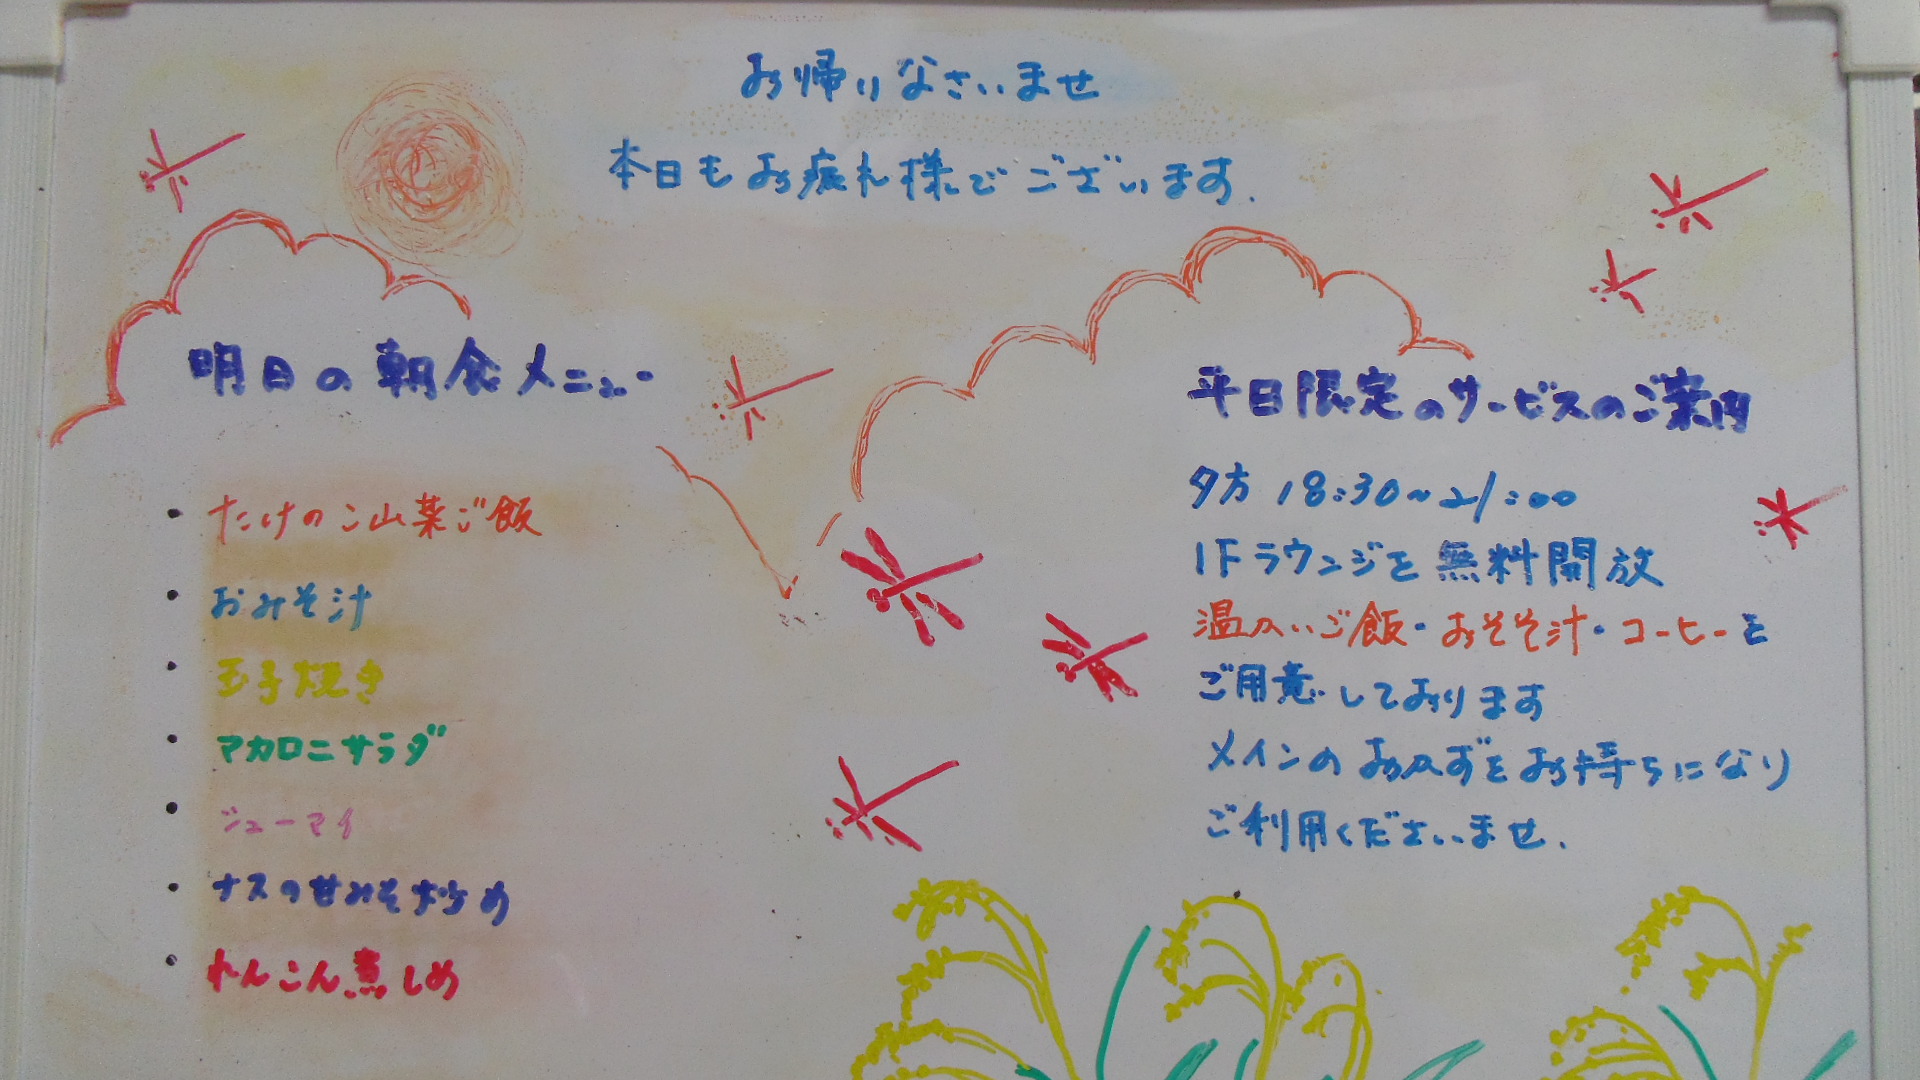 お帰りなさいませ
本日もお疲れ様でございます.
明日の朝食メニュー
・たけのこ山菜ご飯
・おみそ汁
・玉子焼き
・マカロニサラダ
・シューマイ
・ナスの甘みそ炒め
・れんこん煮しめ
平日限定のサービスのご案内
夕方 18:30~21:00
1Fラウンジを無料開放
温かいご飯・おみそ汁・コーヒーを
ご用意しております
メインのおかずをお持ちになり
ご利用くださいませ.